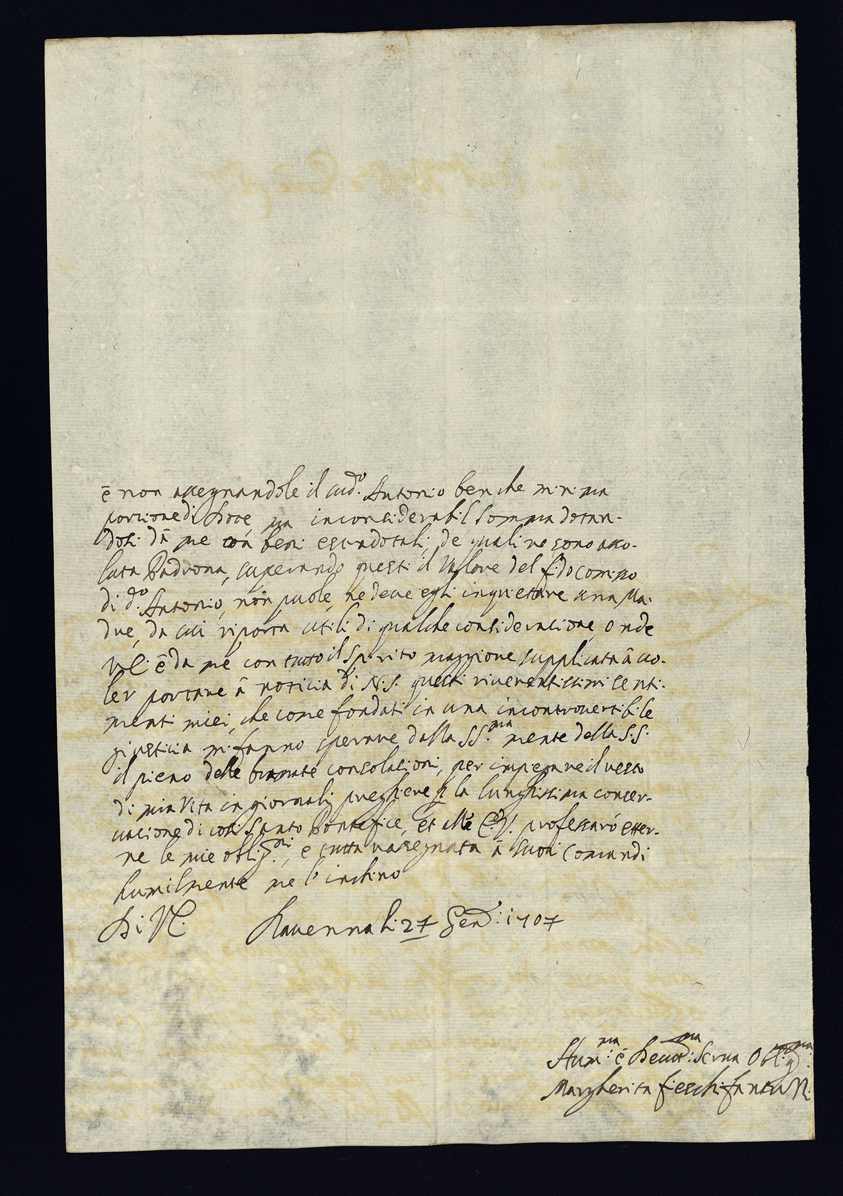 è non assegnandole il sud.º Antonio ben che minima
porzione di Dote, ma inconsiderabil somma dotan-
dosi dà me con beni estradotali, de quali ne sono asso-
luta Padrona, superando questi il Valore del fidocomisso
di d.º Antonio, non puole, ne deve egli inquietare una Ma-
dre, da cui riporta utili di qualche consideratione, onde
VE è da me con tutto il spirito maggiore supplicata à vo-
ler portare à notitia di N.S. questi riverentissimi senti-
menti miei, che come fondati in una incontrovertibile
giustitia mi fanno sperare dalla SS.ma mente della S.S.
il pieno delle bramate consolationi, per impegare il resto
di mia Vita in giornali preghiere p la lunghissima conser-
vatione di così Santo Pontefice, et all' E.V. professarò etter-
ne le mie oblig.ni, e tutta rassegnata à suoi Comandi
humilmente me l'inchino
Di VE. Ravenna li 27 Gen.º 1707
Hum.ma è Deuot.ma Serua Obl.ma
Margherita Fieschi Fantuzzi